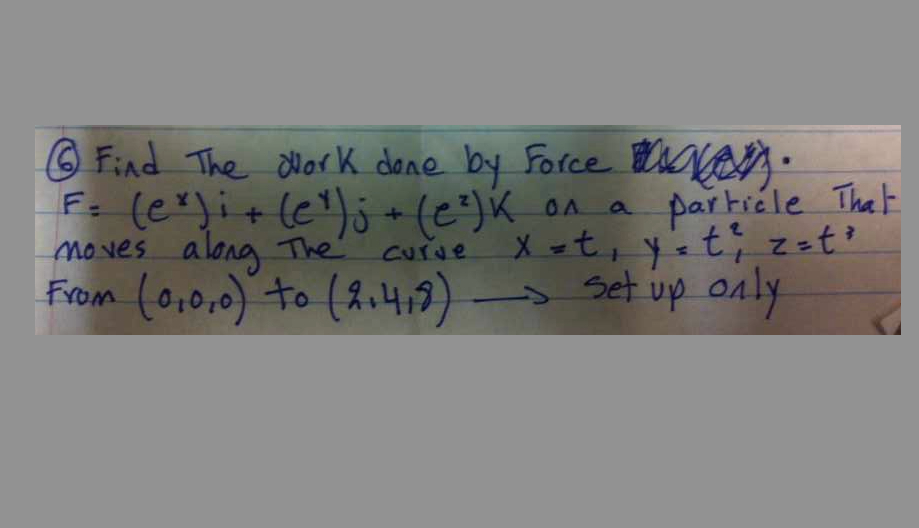 ⑥ Find The Work done by Force .
F= (eˣ)i + (eʸ)j + (eᶻ)K on a particle That
moves along The curve x=t, y=t², z=t³
From (0,0,0) to (2,4,8) → set up only